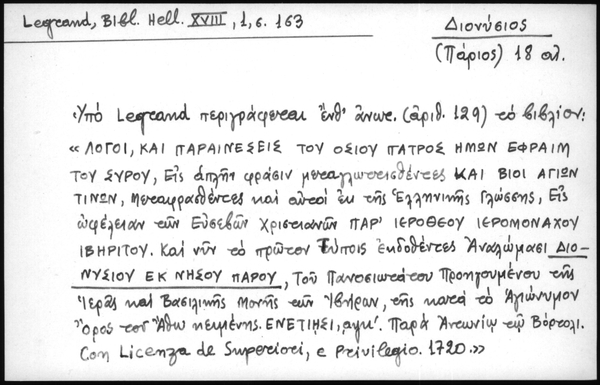 Legrand, Bibl. Hell. XVIII, 1, σ. 163
Διονύσιος
(Πάριος) 18 αἰ.
Ὑπὸ Legrand περιγράφεται ἔνθ' ἄνωτ. (ἀριθ. 129) τὸ βιβλίον:
« ΛΟΓΟΙ, ΚΑΙ ΠΑΡΑΙΝΕΣΕΙΣ ΤΟΥ ΟΣΙΟΥ ΠΑΤΡΟΣ ΗΜΩΝ ΕΦΡΑΙΜ
ΤΟΥ ΣΥΡΟΥ, Εἰς ἁπλῆν φράσιν μεταγλωττισθέντες ΚΑΙ ΒΙΟΙ ΑΓΙΩΝ
ΤΙΝΩΝ, Μεταφρασθέντες καὶ αὐτοὶ ἐκ τῆς Ἑλληνικῆς Γλώσσης, Εἰς
ὠφέλειαν τῶν Εὐσεβῶν Χριστιανῶν ΠΑΡ' ΙΕΡΟΘΕΟΥ ΙΕΡΟΜΟΝΑΧΟΥ
ΙΒΗΡΙΤΟΥ. Καὶ νῦν τὸ πρῶτον Τύποις ἐκδοθέντες Ἀναλώμασι ΔΙΟ-
ΝΥΣΙΟΥ ΕΚ ΝΗΣΟΥ ΠΑΡΟΥ, Τοῦ Πανοσιωτάτου Προηγουμένου τῆς
Ἱερᾶς καὶ Βασιλικῆς Μονῆς τῶν Ἰβήρων, τῆς κατὰ τὸ Ἁγιώνυμον
Ὄρος τοῦ Ἄθω κειμένης. ΕΝΕΤΙΗΣΙ, αψκ'. Παρὰ Ἀντωνίῳ τῷ Βόρτολι.
Con Licenza de Superiori, e Privilegio. 1720.»